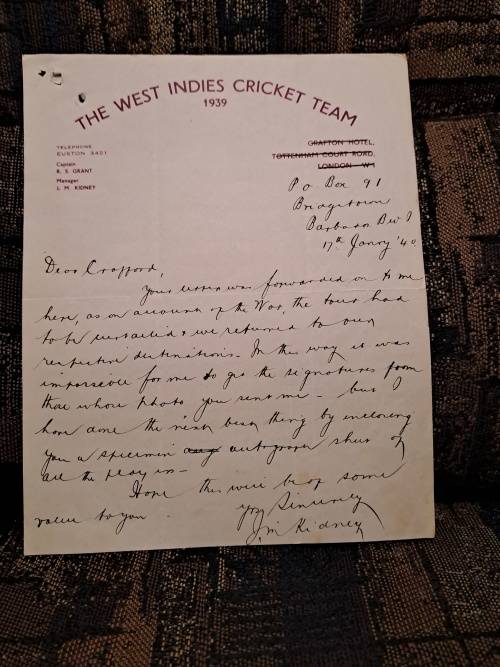 THE WEST INDIES CRICKET TEAM
1939
TELEPHONE
EUSTON 3401
Captain
R. S. GRANT
Manager
L. M. KIDNEY
GRAFTON HOTEL,
TOTTENHAM COURT ROAD,
LONDON W1
P O Box 91
Bridgetown
Barbados B W I
17th Janry '40
Dear Crafford,
Your letter was forwarded on to me
here, as on account of the War, the tour had
to be curtailed & we returned to our
respective destinations. In this way it was
impossible for me to get the signatures from
those whose photo you sent me - but I
have done the next best thing by enclosing
you a specimen autograph sheet of
all the players -
Hope this will be of some
value to you
yrs Sincerely
Kidney